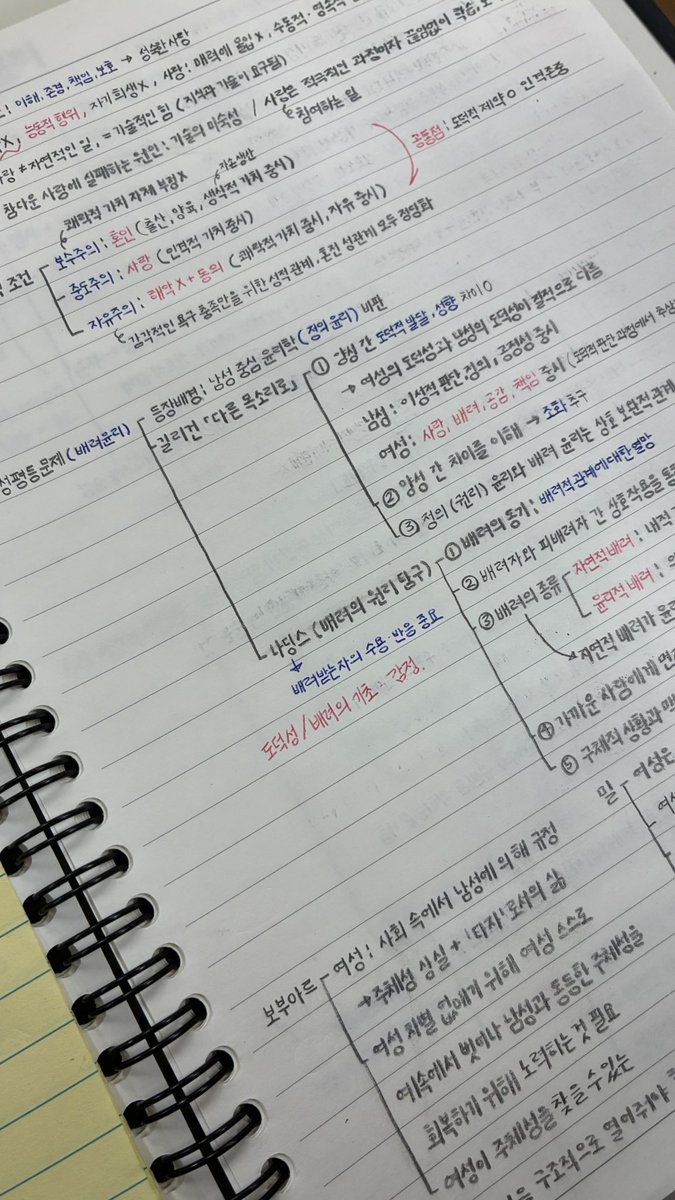 : 이해, 존경, 책임, 보호 → 성숙한 사랑
X, 능동적 행위, 자기희생X, 사랑: 매력에 몰입X, 수동적·영속적
≠ 자연적인 일, = 기술적인 힘 (지식과 기술이 요구됨)
참다운 사랑에 실패하는 원인: 기술의 미숙성 / 사랑은 적극적인 과정이자 끊임없이 학습,
참여하는 일
공통점: 도덕적 제약 O 인격존중
쾌락적 가치 자체 부정X
자손생산
조건
보수주의: 혼인 (출산, 양육, 생식적 가치 중시)
중도주의: 사랑 (인격적 가치 중시)
자유주의: 해악X + 동의 (쾌락적 가치 중시, 자유 중시)
감각적인 욕구 충족만을 위한 성적 관계, 혼전 성관계 모두 정당화
성평등문제 (배려윤리)
등장배경: 남성 중심 윤리학 (정의 윤리) 비판
길리건 「다른 목소리로」
① 양성 간 도덕적 발달, 성향 차이 O
→ 여성의 도덕성과 남성의 도덕성이 질적으로 다름
남성: 이성적 판단, 정의, 공정성 중시
여성: 사랑, 배려, 공감, 책임 중시 (도덕적 판단 과정에서 추상
② 양성 간 차이를 이해 → 조화 추구
③ 정의 (권리) 윤리와 배려 윤리는 상호 보완적 관계
나딩스 (배려의 원리 탐구)
배려받는자의 수용·반응 중요
도덕성/배려의 기초: 감정.
① 배려의 동기: 배려적 관계에 대한 열망
② 배려자와 피배려자 간 상호작용을 통
③ 배려의 종류
자연적 배려: 내적
윤리적 배려:
→ 자연적 배려가 윤리
④ 가까운 사람에게 먼저
⑤ 구체적 상황과 맥
밀 - 여성은
여성
보부아르 - 여성: 사회 속에서 남성에 의해 규정
→ 주체성 상실 + '타자'로서의 삶
여성 차별 없애기 위해 여성 스스로
예속에서 벗어나 남성과 동등한 주체성을
회복하기 위해 노력하는 것 필요
여성이 주체성을 찾을 수 있는
을 구조적으로 열어줘야